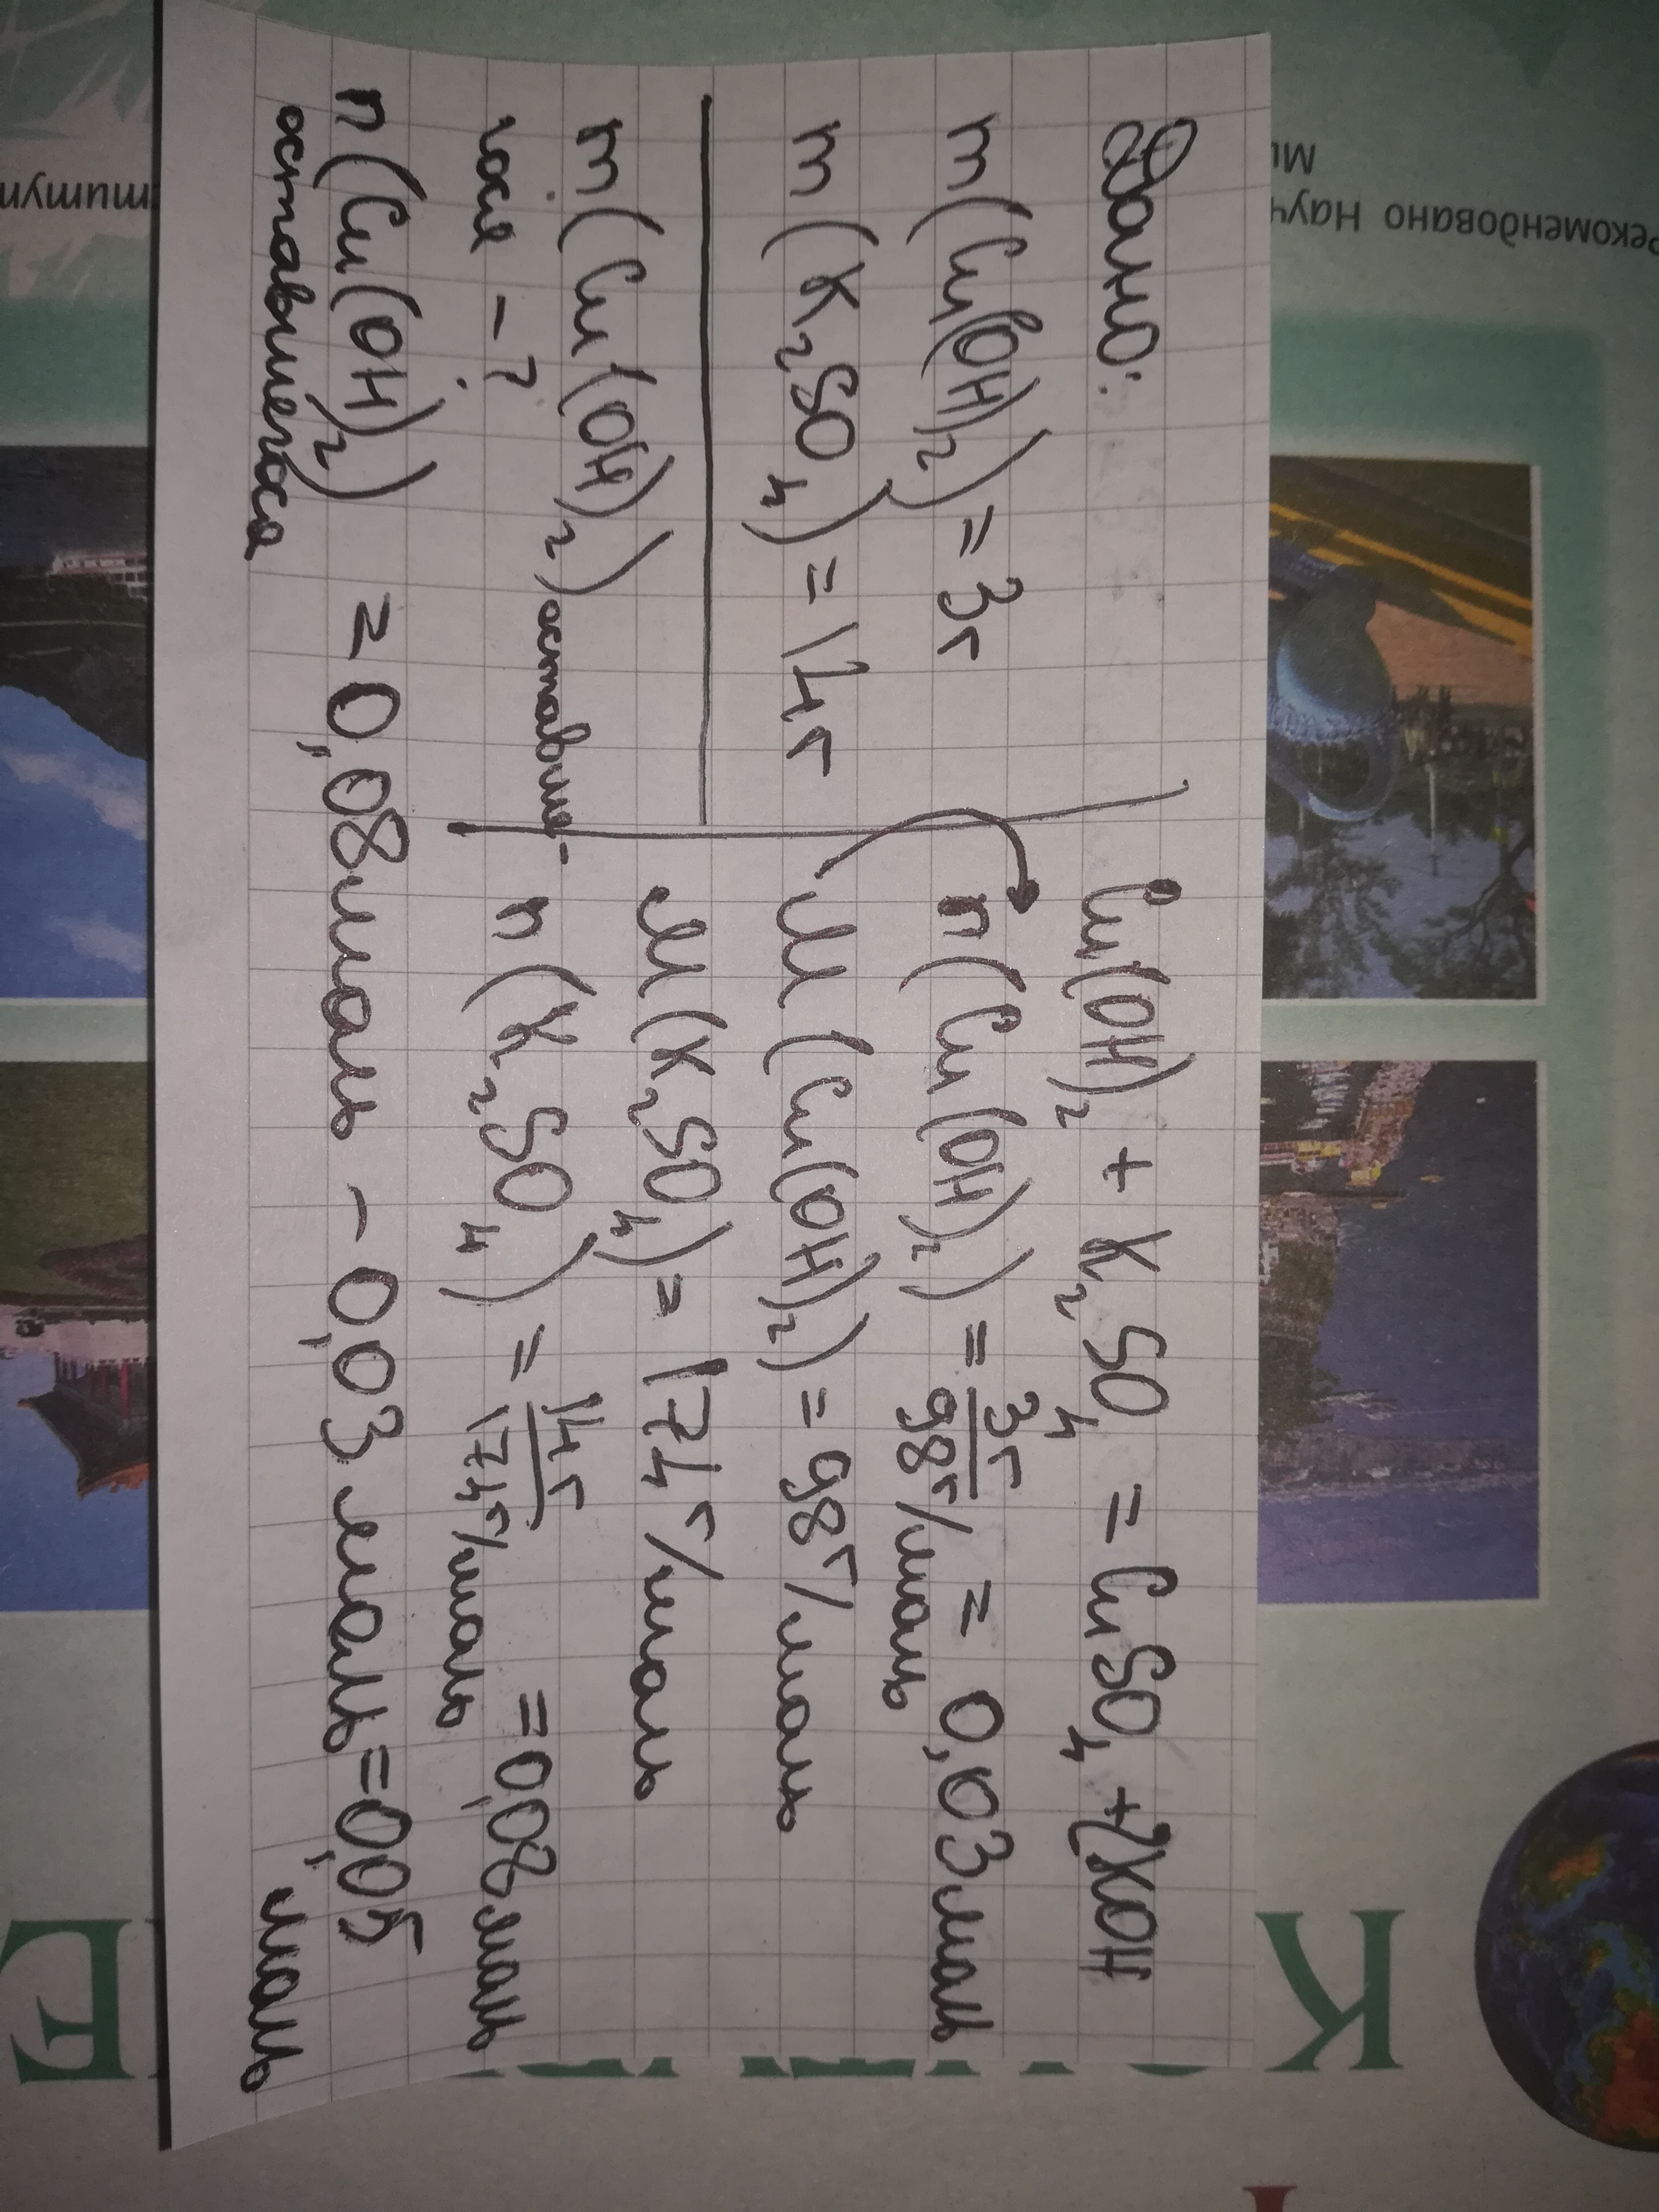 Дано:
m(Cu(OH)₂) = 3г
m(K₂SO₄) = 14г
m(Cu(OH)₂) оставше-
гося - ?
Cu(OH)₂ + K₂SO₄ = CuSO₄ + 2KOH
n(Cu(OH)₂) = 3г/98г/моль = 0,03моль
M(Cu(OH)₂) = 98г/моль
M(K₂SO₄) = 174г/моль
n(K₂SO₄) = 14г/174г/моль = 0,08моль
n(Cu(OH)₂) = 0,08моль - 0,03моль = 0,05
оставшегося моль
Рекомендовано Науч
К
Е